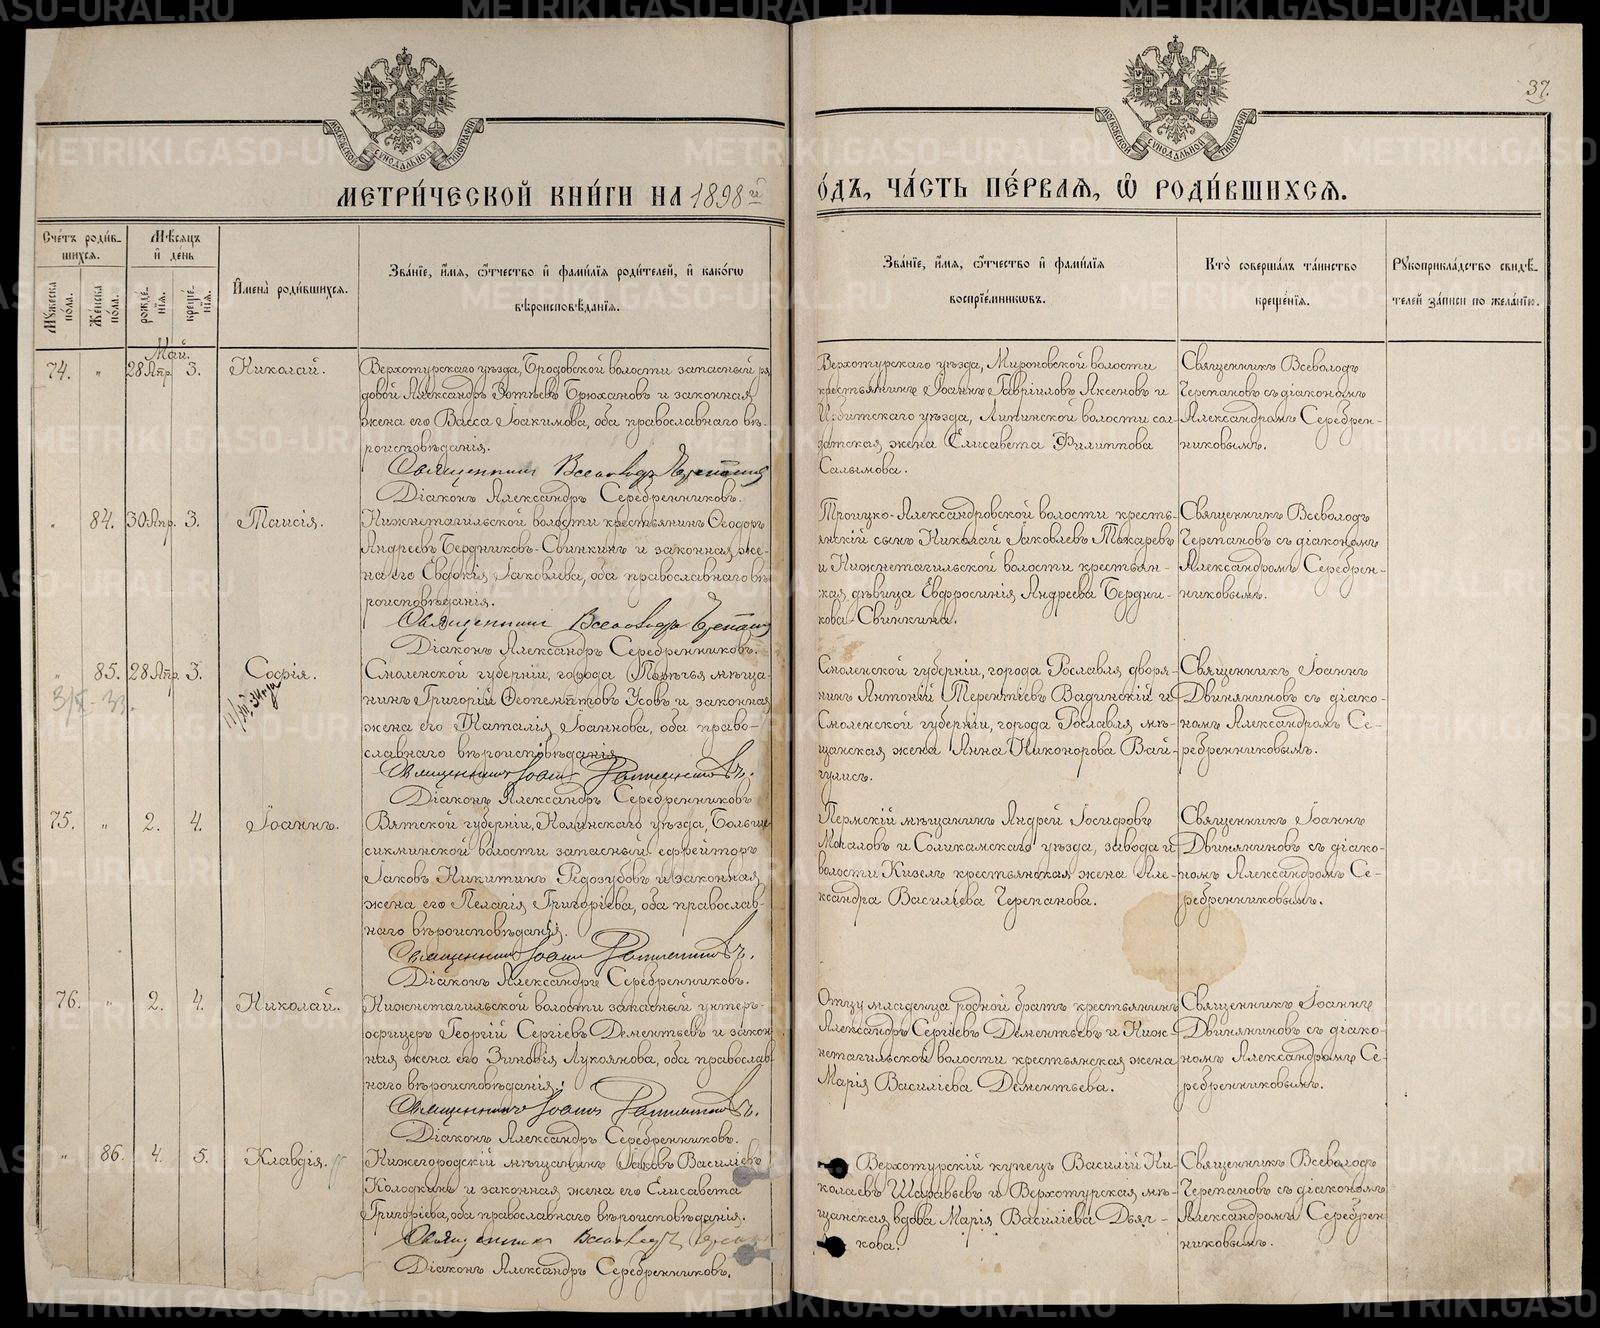 METRIKI.GASO-URAL.RU
37.
МОСКОВСКОЙ СѴНОДАЛЬНОЙ ТИПОГРАФІИ
МОСКОВСКОЙ СѴНОДАЛЬНОЙ ТИПОГРАФІИ
МЕТРИ́ЧЕСКОЙ КНИ́ГИ НА 1898 й
О́ДЪ, ЧА́СТЬ ПЕ́РВАЯ, Ѽ РОДИ́ВШИХСЯ.
Сче́тъ роди́в-
шихся.
Мѣ́сяцъ
и҆ де́нь
Му́жеска по́ла.
Же́нска по́ла.
рожде́-
нїя.
креще́-
нїя.
И҆мена̀ роди́вшихся.
Зва́нїе, и҆́мя, ѻ҆́тчество и҆ фами́лїя роди́телей, и҆ како́гѡ
вѣроисповѣ́данїя.
Зва́нїе, и҆́мя, ѻ҆́тчество и҆ фами́лїя
воспрїе́мниковъ.
Кто̀ соверша́лъ та́инство
креще́нїя.
Рꙋкоприкла́дство свидѣ́-
телей за́писи по жела́нїю.
Май.
74. " 28 Апр. 3. Николай.
Верхотурскаго уѣзда, Бродовской волости запасный ря
довой Александръ Фотіевъ Брюхановъ и законная
жена его Васса Іоакимова, оба православнаго вѣ-
роисповѣданія.
Священникъ Всеволодъ Черепановъ
Діаконъ Александръ Серебренниковъ.
Верхотурскаго уѣзда, Мироновской волости
крестьянинъ Іоаннъ Гавріиловъ Аксеновъ и
Ирбитскаго уѣзда, Липинской волости сол-
датская жена Елисавета Филиппова
Салымова.
Священникъ Всеволодъ
Черепановъ съ діакономъ
Александромъ Серебрен-
никовымъ.
" 84. 30 Апр. 3. Таисія.
Нижнетагильской волости крестьянинъ Ѳеодоръ
Андреевъ Бердниковъ-Свинкинъ и законная же-
на его Евдокія Іаковлева, оба православнаго вѣ
роисповѣданія.
Священникъ Всеволодъ Черепановъ
Діаконъ Александръ Серебренниковъ.
Троицко-Александровской волости кресть-
янскій сынъ Николай Іаковлевъ Токаревъ
и Нижнетагильской волости крестьян-
ская дѣвица Евфросинія Андреева Бердни-
кова-Свинкина.
Священникъ Всеволодъ
Черепановъ съ діакономъ
Александромъ Серебрен-
никовымъ.
" 85. 28 Апр. 3. Софія.
Смоленской губерніи, города Порѣчья мѣща-
нинъ Григорій Ѳеопемптовъ Усовъ и законная
жена его Наталія Іоаннова, оба право-
славнаго вѣроисповѣданія
Священникъ Іоаннъ
Діаконъ Александръ Серебренниковъ
Смоленской губерніи, города Рославля дворя-
нинъ Антоній Терентіевъ Вадинскій и
Смоленской губерніи, города Рославля мѣ-
щанская жена Анна Никонорова Вай-
гулисъ.
Священникъ Іоаннъ
Двиняниновъ съ діако-
номъ Александромъ Се-
ребренниковымъ.
75. " 2. 4. Іоаннъ.
Вятской губерніи, Нолинскаго уѣзда, Больше
сикминской волости запасный ефрейторъ
Іаковъ Никитинъ Редозубовъ и законная
жена его Пелагія Григоріева, оба православ-
наго вѣроисповѣданія.
Священникъ Іоаннъ
Діаконъ Александръ Серебренниковъ.
Пермскій мѣщанинъ Андрей Іосифовъ
Мокаловъ и Соликамскаго уѣзда, завода и
волости Кизелъ крестьянская жена Але-
ксандра Василіева Черепанова.
Священникъ Іоаннъ
Двиняниновъ съ діако-
номъ Александромъ Се-
ребренниковымъ.
76. " 2. 4. Николай.
Нижнетагильской волости запасный унтеръ-
офицеръ Георгій Сергіевъ Дементьевъ и закон
ная жена его Зиновія Лукоянова, оба православ
наго вѣроисповѣданія.
Священникъ Іоаннъ
Діаконъ Александръ Серебренниковъ.
Отцу младенца родной братъ крестьянинъ
Александръ Сергіевъ Дементьевъ и Ниж-
нетагильской волости крестьянская жена
Марія Василіева Дементьева.
Священникъ Іоаннъ
Двиняниновъ съ діако-
номъ Александромъ Се-
ребренниковымъ.
" 86. 4. 5. Клавдія.
Нижегородскій мѣщанинъ Іаковъ Василіевъ
Колодкинъ и законная жена его Елисавета
Григоріева, оба православнаго вѣроисповѣданія.
Священникъ Всеволодъ
Діаконъ Александръ Серебренниковъ.
Верхотурскій купецъ Василій Ни-
колаевъ Шаравьевъ и Верхотурская мѣ-
щанская вдова Марія Василіева Дьяч-
кова.
Священникъ Всеволодъ
Черепановъ съ діакономъ
Александромъ Серебрен
никовымъ.